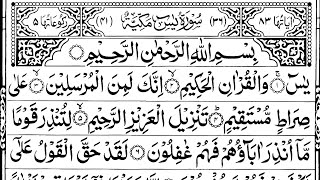 اٰيَاتُهَا ٨٣ (٣٦) سُوْرَةُ يٰسٓ مَكِّيَّةٌ (٤١) رُكُوْعَاتُهَا ٥
بِسْمِ اللّٰهِ الرَّحْمٰنِ الرَّحِيْمِ
يٰسٓ ۞ وَالْقُرْاٰنِ الْحَكِيْمِ ۞ اِنَّكَ لَمِنَ الْمُرْسَلِيْنَ ۞ عَلٰى
صِرَاطٍ مُّسْتَقِيْمٍ ۞ تَنْزِيْلَ الْعَزِيْزِ الرَّحِيْمِ ۞ لِتُنْذِرَ قَوْمًا
مَّاۤ اُنْذِرَ اٰبَآؤُهُمْ فَهُمْ غٰفِلُوْنَ ۞ لَقَدْ حَقَّ الْقَوْلُ عَلٰۤى